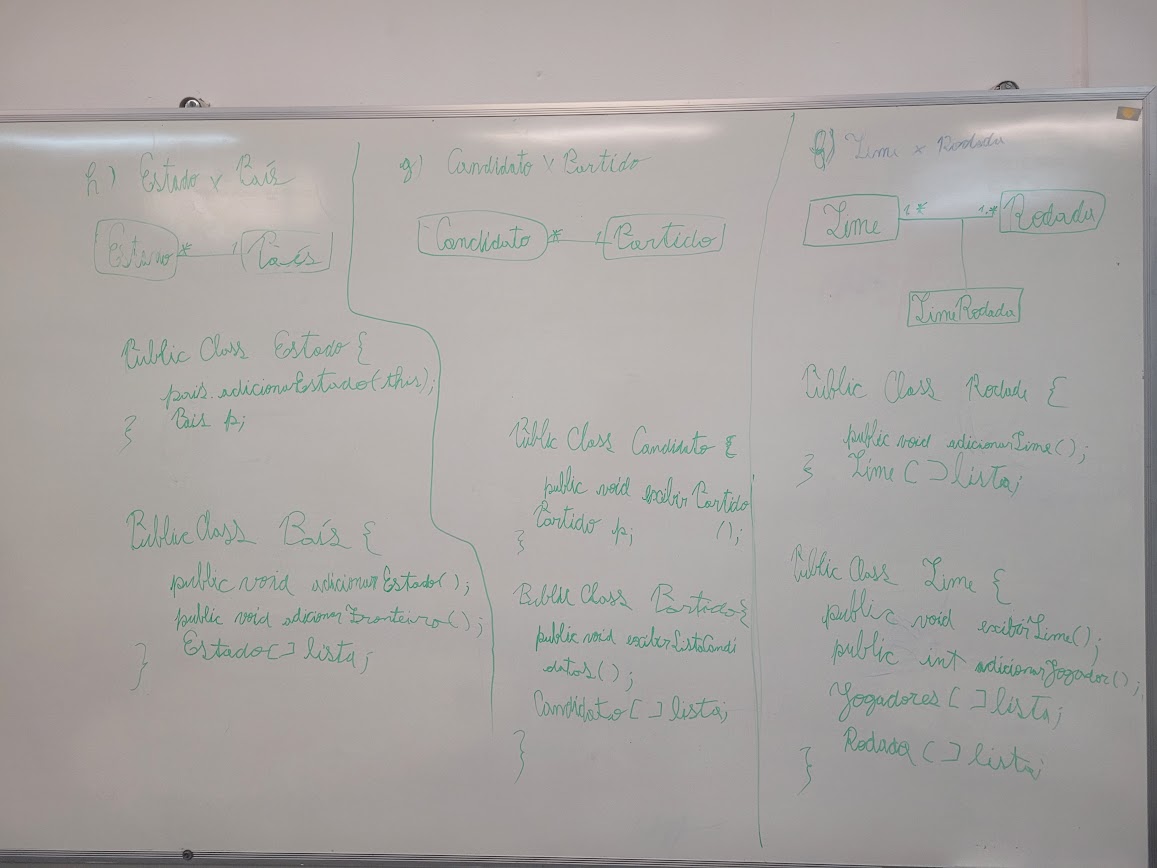 h) Estado x País
Estado * 1 País
Public Class Estado {
pais.adicionarEstado(this);
Pais p;
}
Public Class País {
public void adicionarEstado();
public void adicionarFronteira();
Estado[] lista;
}
g) Candidato x Partido
Candidato * 1 Partido
Public Class Candidato {
public void exibirPartido
Partido p; ();
}
Public Class Partido {
public void exibirListaCandi
datos();
Candidato[] lista;
}
Time x Rodada
Time 1.* 1.* Rodada
TimeRodada
Public Class Rodada {
public void adicionarTime();
} Time[] lista;
Public Class Time {
public void exibirTime();
public int adicionarJogador();
Jogadores[] lista;
Rodada[] lista;
}